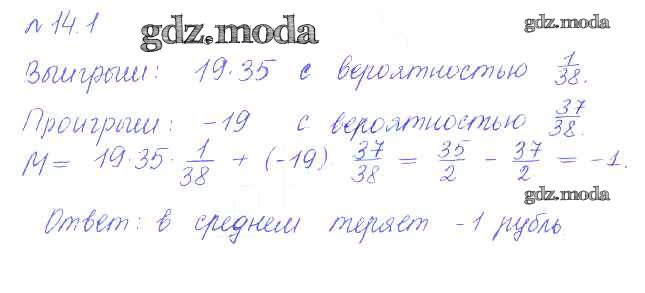 № 14.1
gdz.moda
gdz.moda
Выигрыш: 19·35 с вероятностью 1/38.
Проигрыш: -19 с вероятностью 37/38.
M = 19·35·1/38 + (-19)·37/38 = 35/2 - 37/2 = -1.
gdz.moda
Ответ: в среднем теряет -1 рубль.